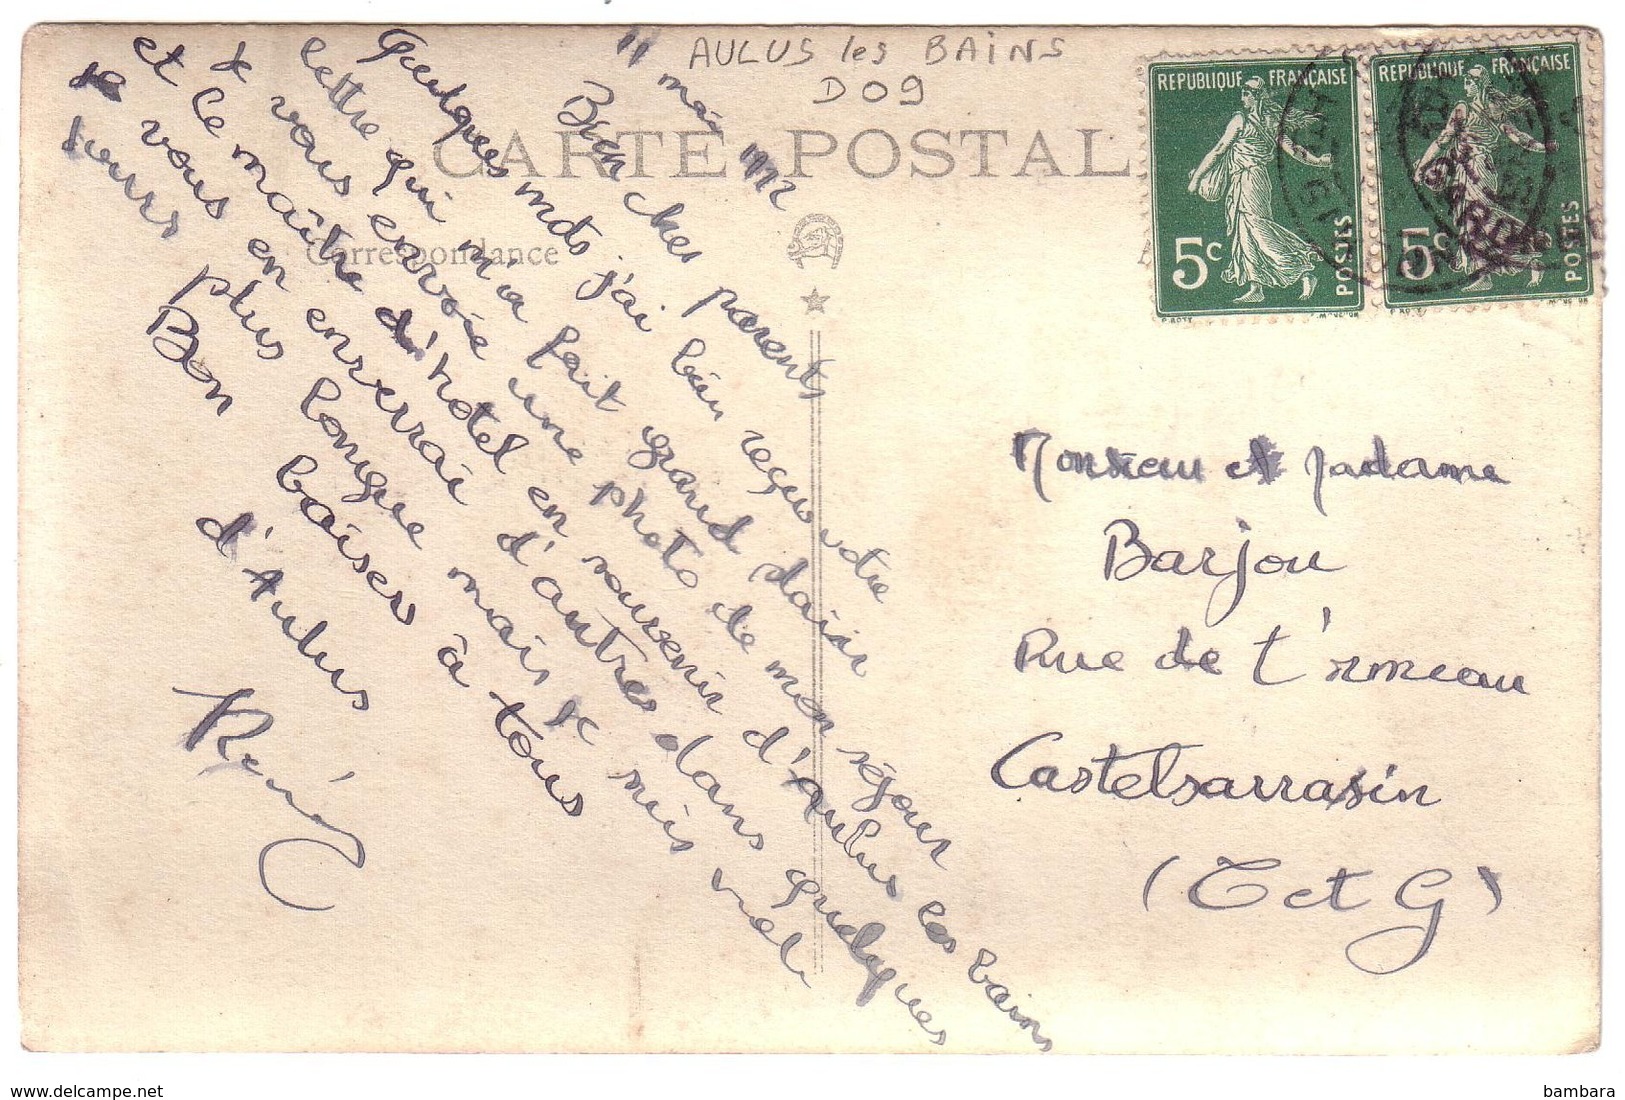 AULUS les BAINS
D09
CARTE POSTALE
Correspondance
11 mai
Bien chers parents
Quelques mots j'ai bien reçu votre
lettre qui m'a fait grand plaisir
Je vous envoie une photo de mon séjour
et le maître d'hotel en souvenir d'Aulus les bains
Je vous en enverrai d'autres dans quelques
jours
plus longue mais je suis
Bon baisers à tous
d'Aulus
René
REPUBLIQUE FRANÇAISE
5c
POSTES
REPUBLIQUE FRANÇAISE
5c
POSTES
Monsieur et Madame
Barjou
Rue de l'ormeau
Castelsarrasin
(T et G)
delcampe.net
bambara